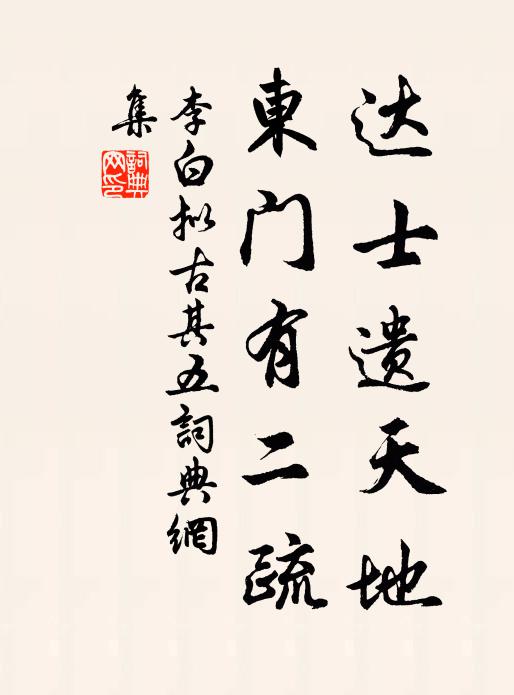 达士遗天地
東门有二疏
李白拟古其五詞典網
集
詞典
网印